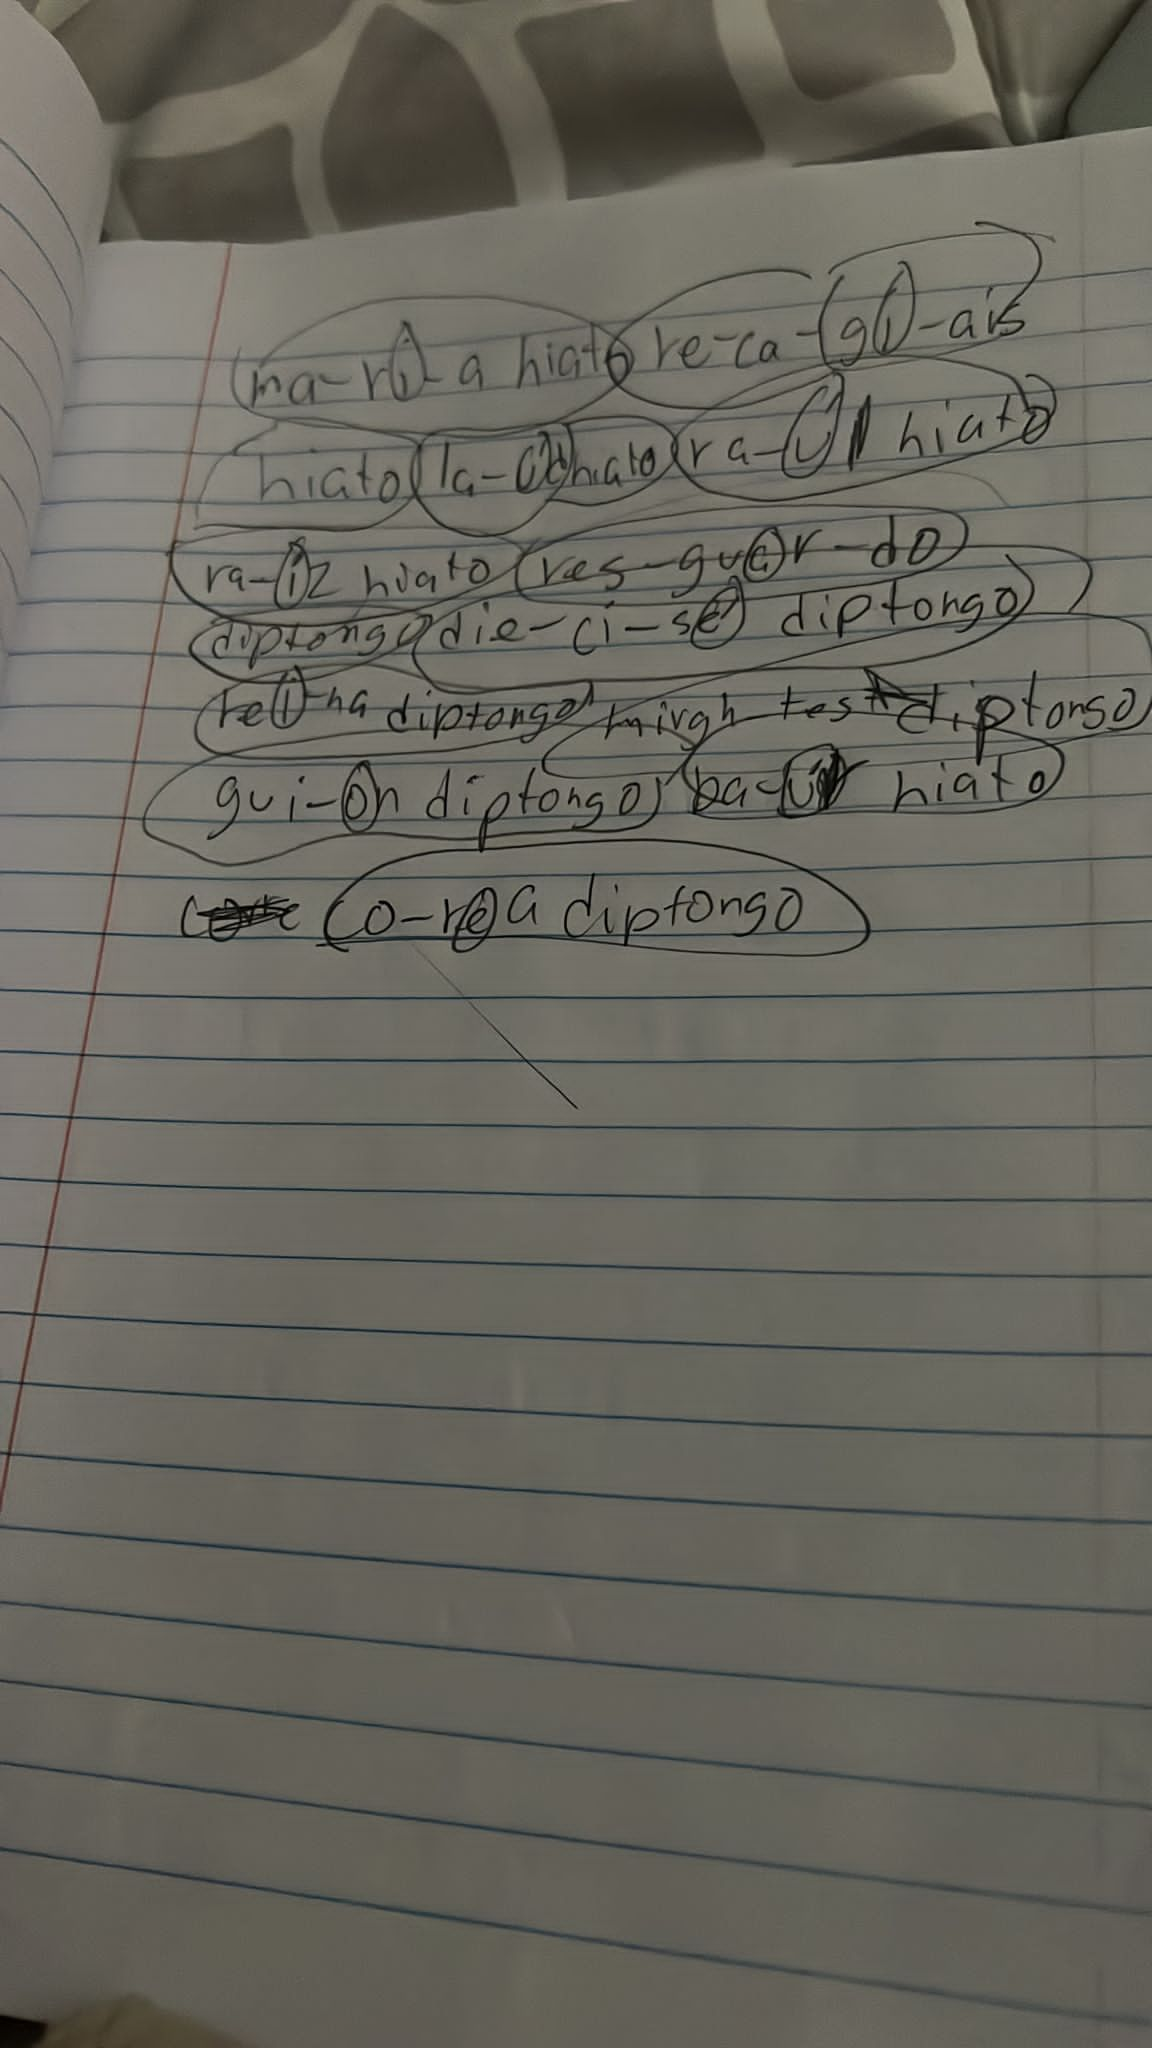 ma-ri-a hiato re-ca-gi-ais
hiato la-ud hiato ra-ul hiato
ra-iz hiato res-guar-do
diptongo die-ci-se diptongo
rei-na diptongo diptongo
gui-on diptongo ba-ul hiato
co-rea diptongo